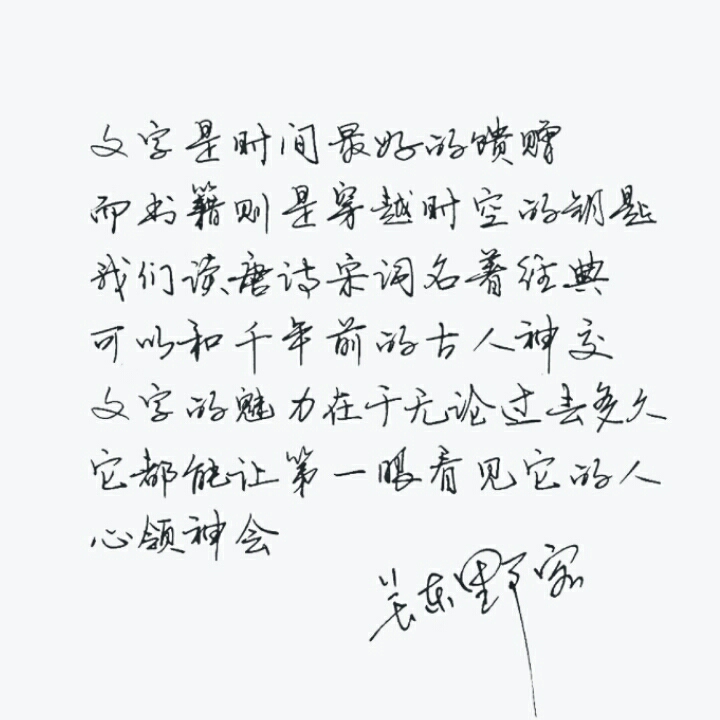 文字是时间最好的馈赠
而书籍则是穿越时空的钥匙
我们读唐诗宋词名著经典
可以和千年前的古人神交
文字的魅力在于无论过去多久
它都能让第一眼看见它的人
心领神会
关东野客